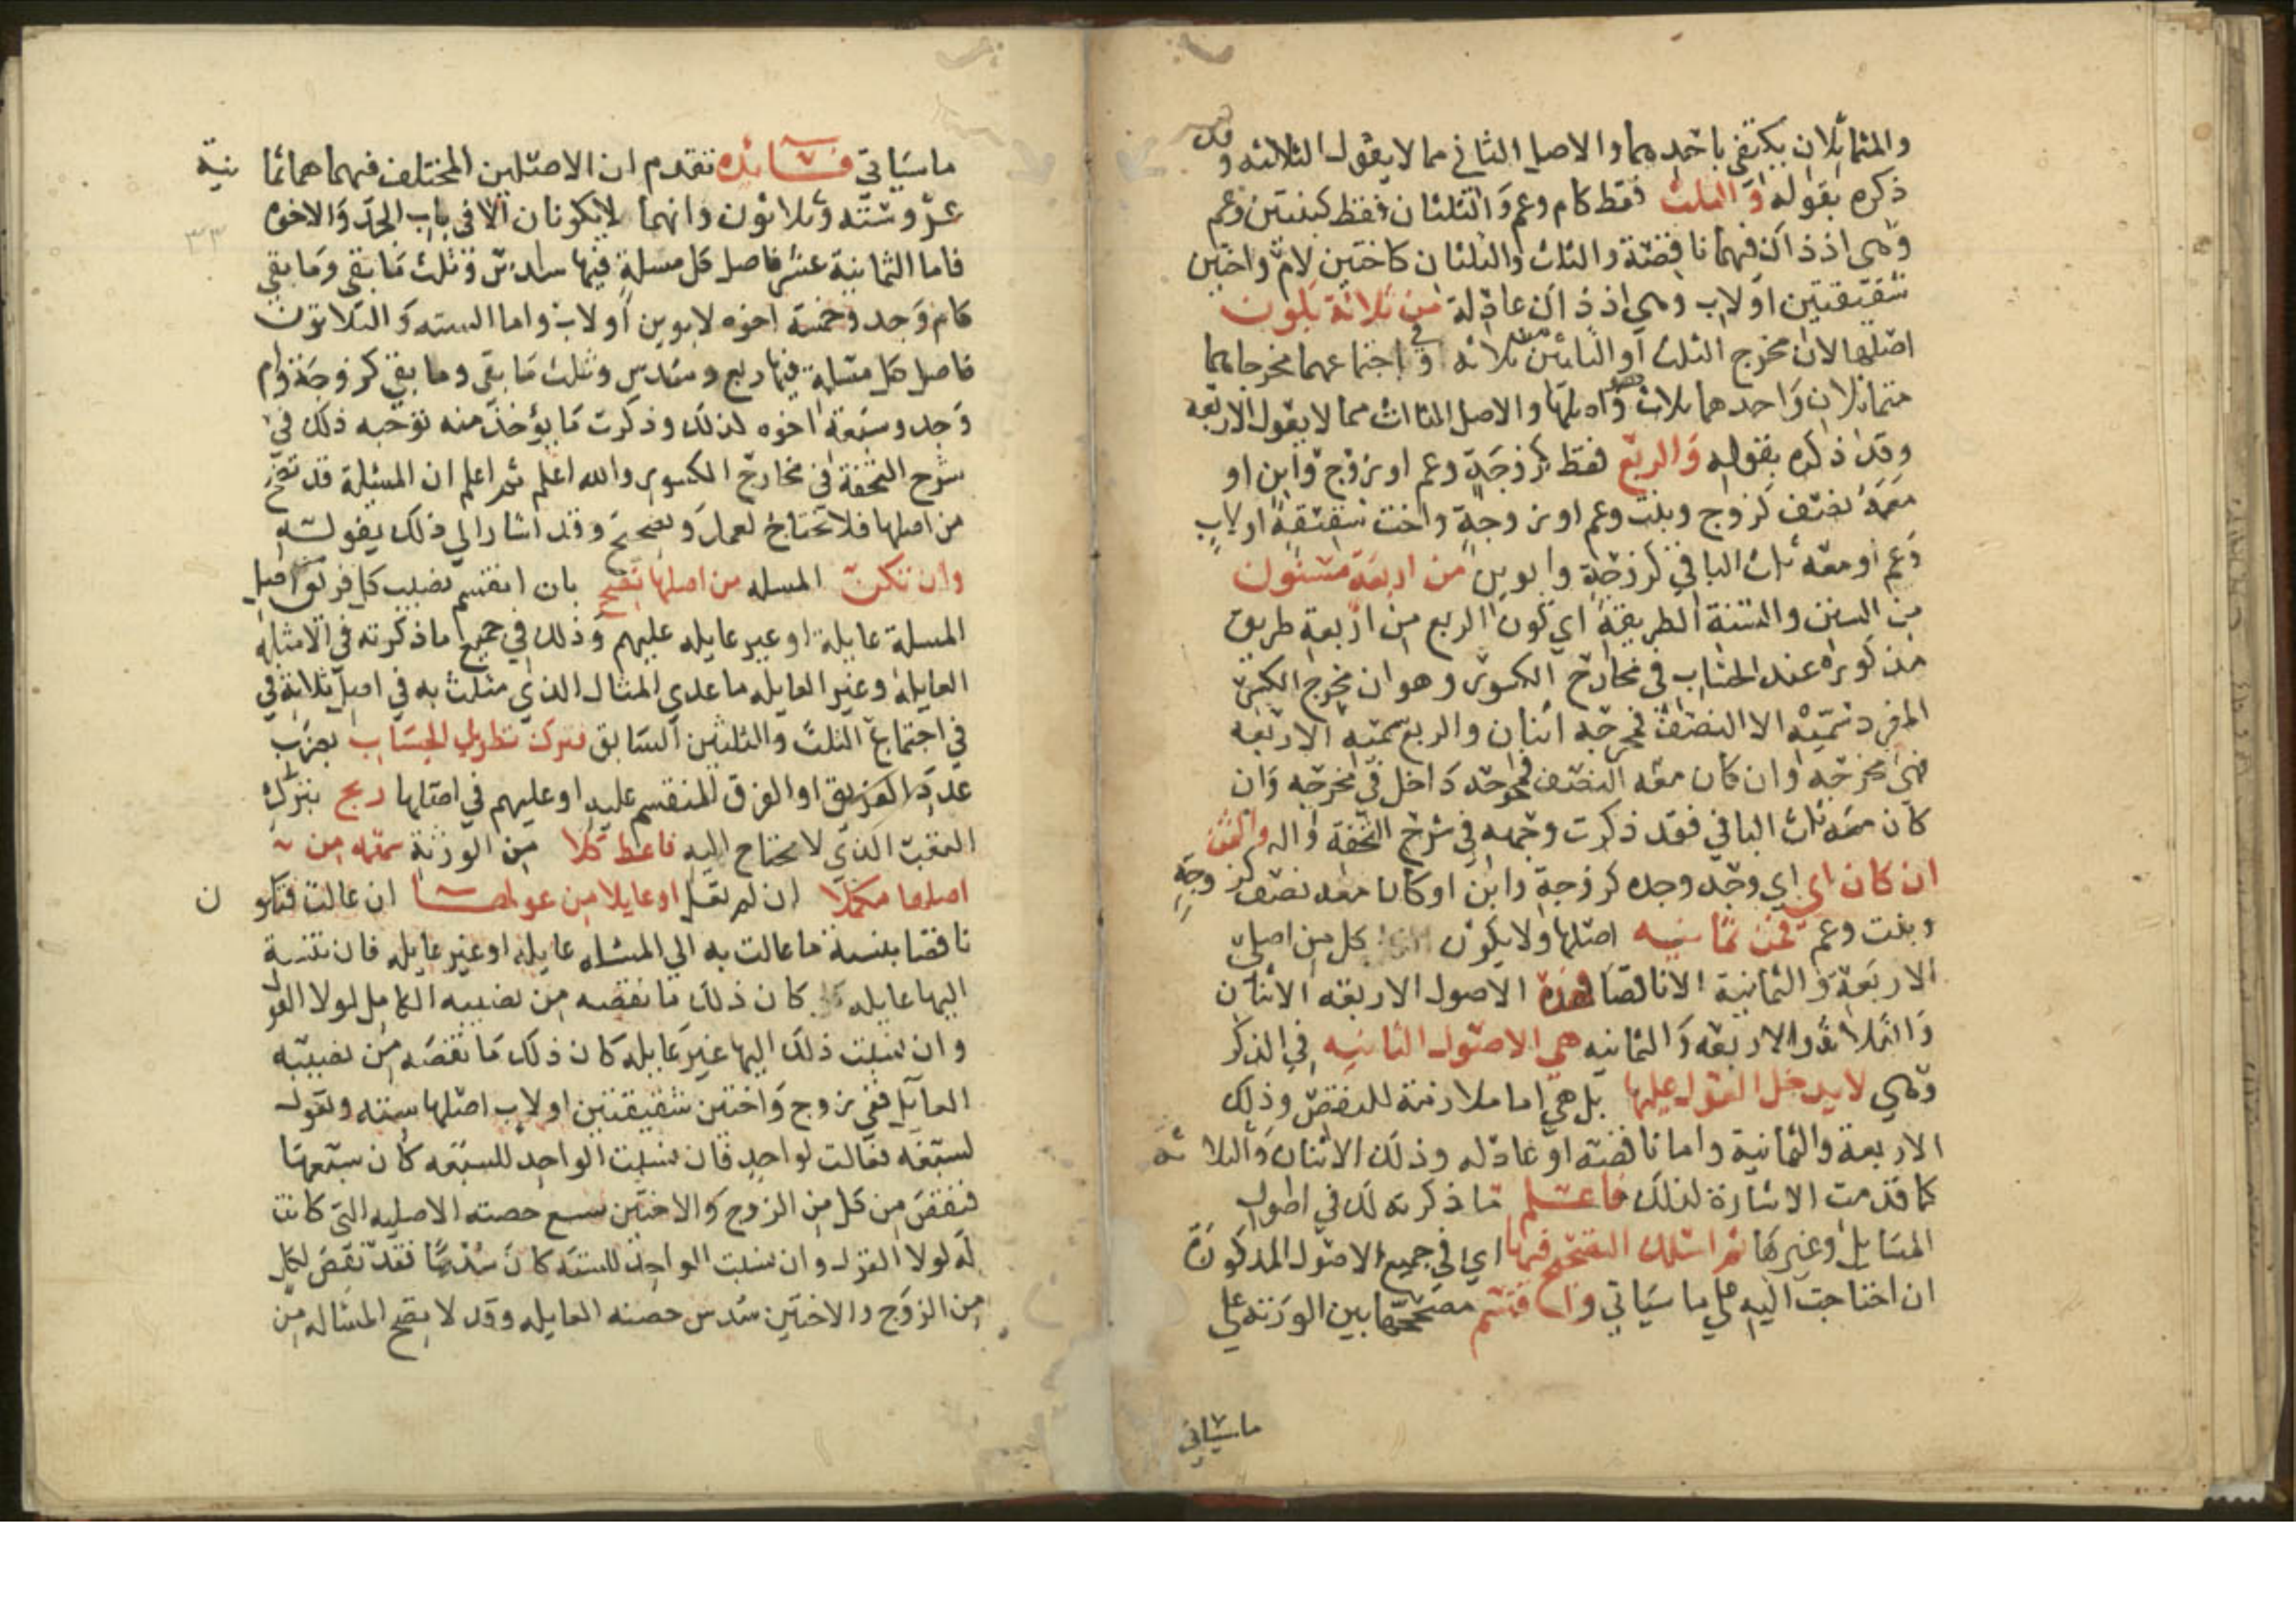 والمتماثلان يكتفي باحدهما والاصل الثاني مما لا يعول الثلاثه وقد
ذكره بقوله والثلث فقط كام وعم والثلثان فقط كبنتين وعم
وهي اذ ذاك فيهما ناقصة والثلث والثلثان كاختين لام واختين
شقيقتين او لاب وهي اذ ذاك عادلة من ثلاثة يكون
اصلها لان مخرج الثلث او الثلثين من ثلاثه وفي اجتماعهما مخرجاهما
متماثلان واحدهما ثلاث وهو اصلها والاصل الثالث مما لا يعول الاربعه
وقد ذكره بقوله والربع فقط كزوجة وعم او زوج وابن او
معه نصف كزوج وبنت وعم او زوجة واخت شقيقة او لاب
وعم او معه ثلث الباقي كزوجة وابوين من اربعة مسنون
من السنن والسنة الطريقة اي كون الربع من اربعة طريق
مذكورة عند الحساب في مخارج الكسور وهو ان مخرج الكسر
المفرد سميه الا النصف فمخرجه اثنان والربع سميه الاربعه
فهي مخرجه وان كان معه النصف فمخرجه داخل في مخرجه وان
كان معه ثلث الباقي فقد ذكرت وجهه في شرح التحفة واله والثمن
ان كان اي اي وجد وحده كزوجة وابن او كان معه نصف كزوجة
وبنت وعم فمن ثمانيه اصلها ولا يكون كل من اصلي
الاربعة والثمانية الا ناقصا فهذه الاصول الاربعه الاثنان
والثلاثة والاربعه والثمانيه هي الاصول الثانيه في الذكر
وهي لا يدخل العول عليها بل هي اما ملازمة للنقص وذلك
الاربعة والثمانية واما ناقصة او عادله وذلك الاثنان والثلاثة
كما قدمت الاشارة لذلك فاعلم ما ذكرته لك في اصول
المسايل وغيرها ثم اسلك التصحيح فيها اي في جميع الاصول المذكورة
ان احتاجت اليه على ما سياتي واقسم مصححها بين الورثة على
ما سياتي
ما سياتي فائده تقدم ان الاصلين المختلف فيهما هما ثمانية
عشر وستة وثلاثون وانهما لا يكونان الا في باب الجد والاخوه
فاما الثمانية عشر فاصل كل مسلة فيها سدس وثلث ما بقي وما بقي
كام وجد وخمسة اخوه لابوين او لاب واما السته والثلاثون
فاصل كل مسلة فيها ربع وسدس وثلث ما بقي وما بقي كزوجة وام
وجد وسبعة اخوه لذلك وذكرت ما يؤخذ منه توجيه ذلك في
شرح التحفة في مخارج الكسور والله اعلم ثم اعلم ان المسئلة قد تصح
من اصلها فلا تحتاج لعمل وتصحيح وقد اشار الي ذلك بقوله
وان تكن المسله من اصلها تصح بان انقسم نصيب كل فريق من اصل
المسلة عايلة او غير عايله عليهم وذلك في جميع ما ذكرته في الامثله
العايلة وغير العايله ما عدي المثال الذي مثلت به في اصل ثلاثة في
في اجتماع الثلث والثلثين السابق فترك تطويل الحساب بضرب
عدد الفريق او الفرق المنقسم عليه او عليهم في اصلها ربح بترك
التعب الذي لا يحتاج اليه فاعط كلا من الورثة سهمه من
اصلها مكملا ان لم تعل او عايلا من عولها ان عالت فتكون
ناقصا بنسبة ما عالت به الي المسئله عايله او غير عايله فان نسبته
اليها عايله كان ذلك ما نقصه من نصيبه الكامل لولا العول
وان نسبت ذلك اليها غير عايله كان ذلك ما نقصه من نصيبه
العايل ففي زوج واختين شقيقتين او لاب اصلها سته وتعول
لسبعه فعالت لواحد فان نسبت الواحد للسبعه كان سبعها
فنقص من كل من الزوج والاختين سبع حصته الاصليه التي كانت
له لولا العول وان نسبت الواحد للسته كان سدسا فقد نقص لكل
من الزوج والاختين سدس حصته العايله وقد لا تصح المساله من